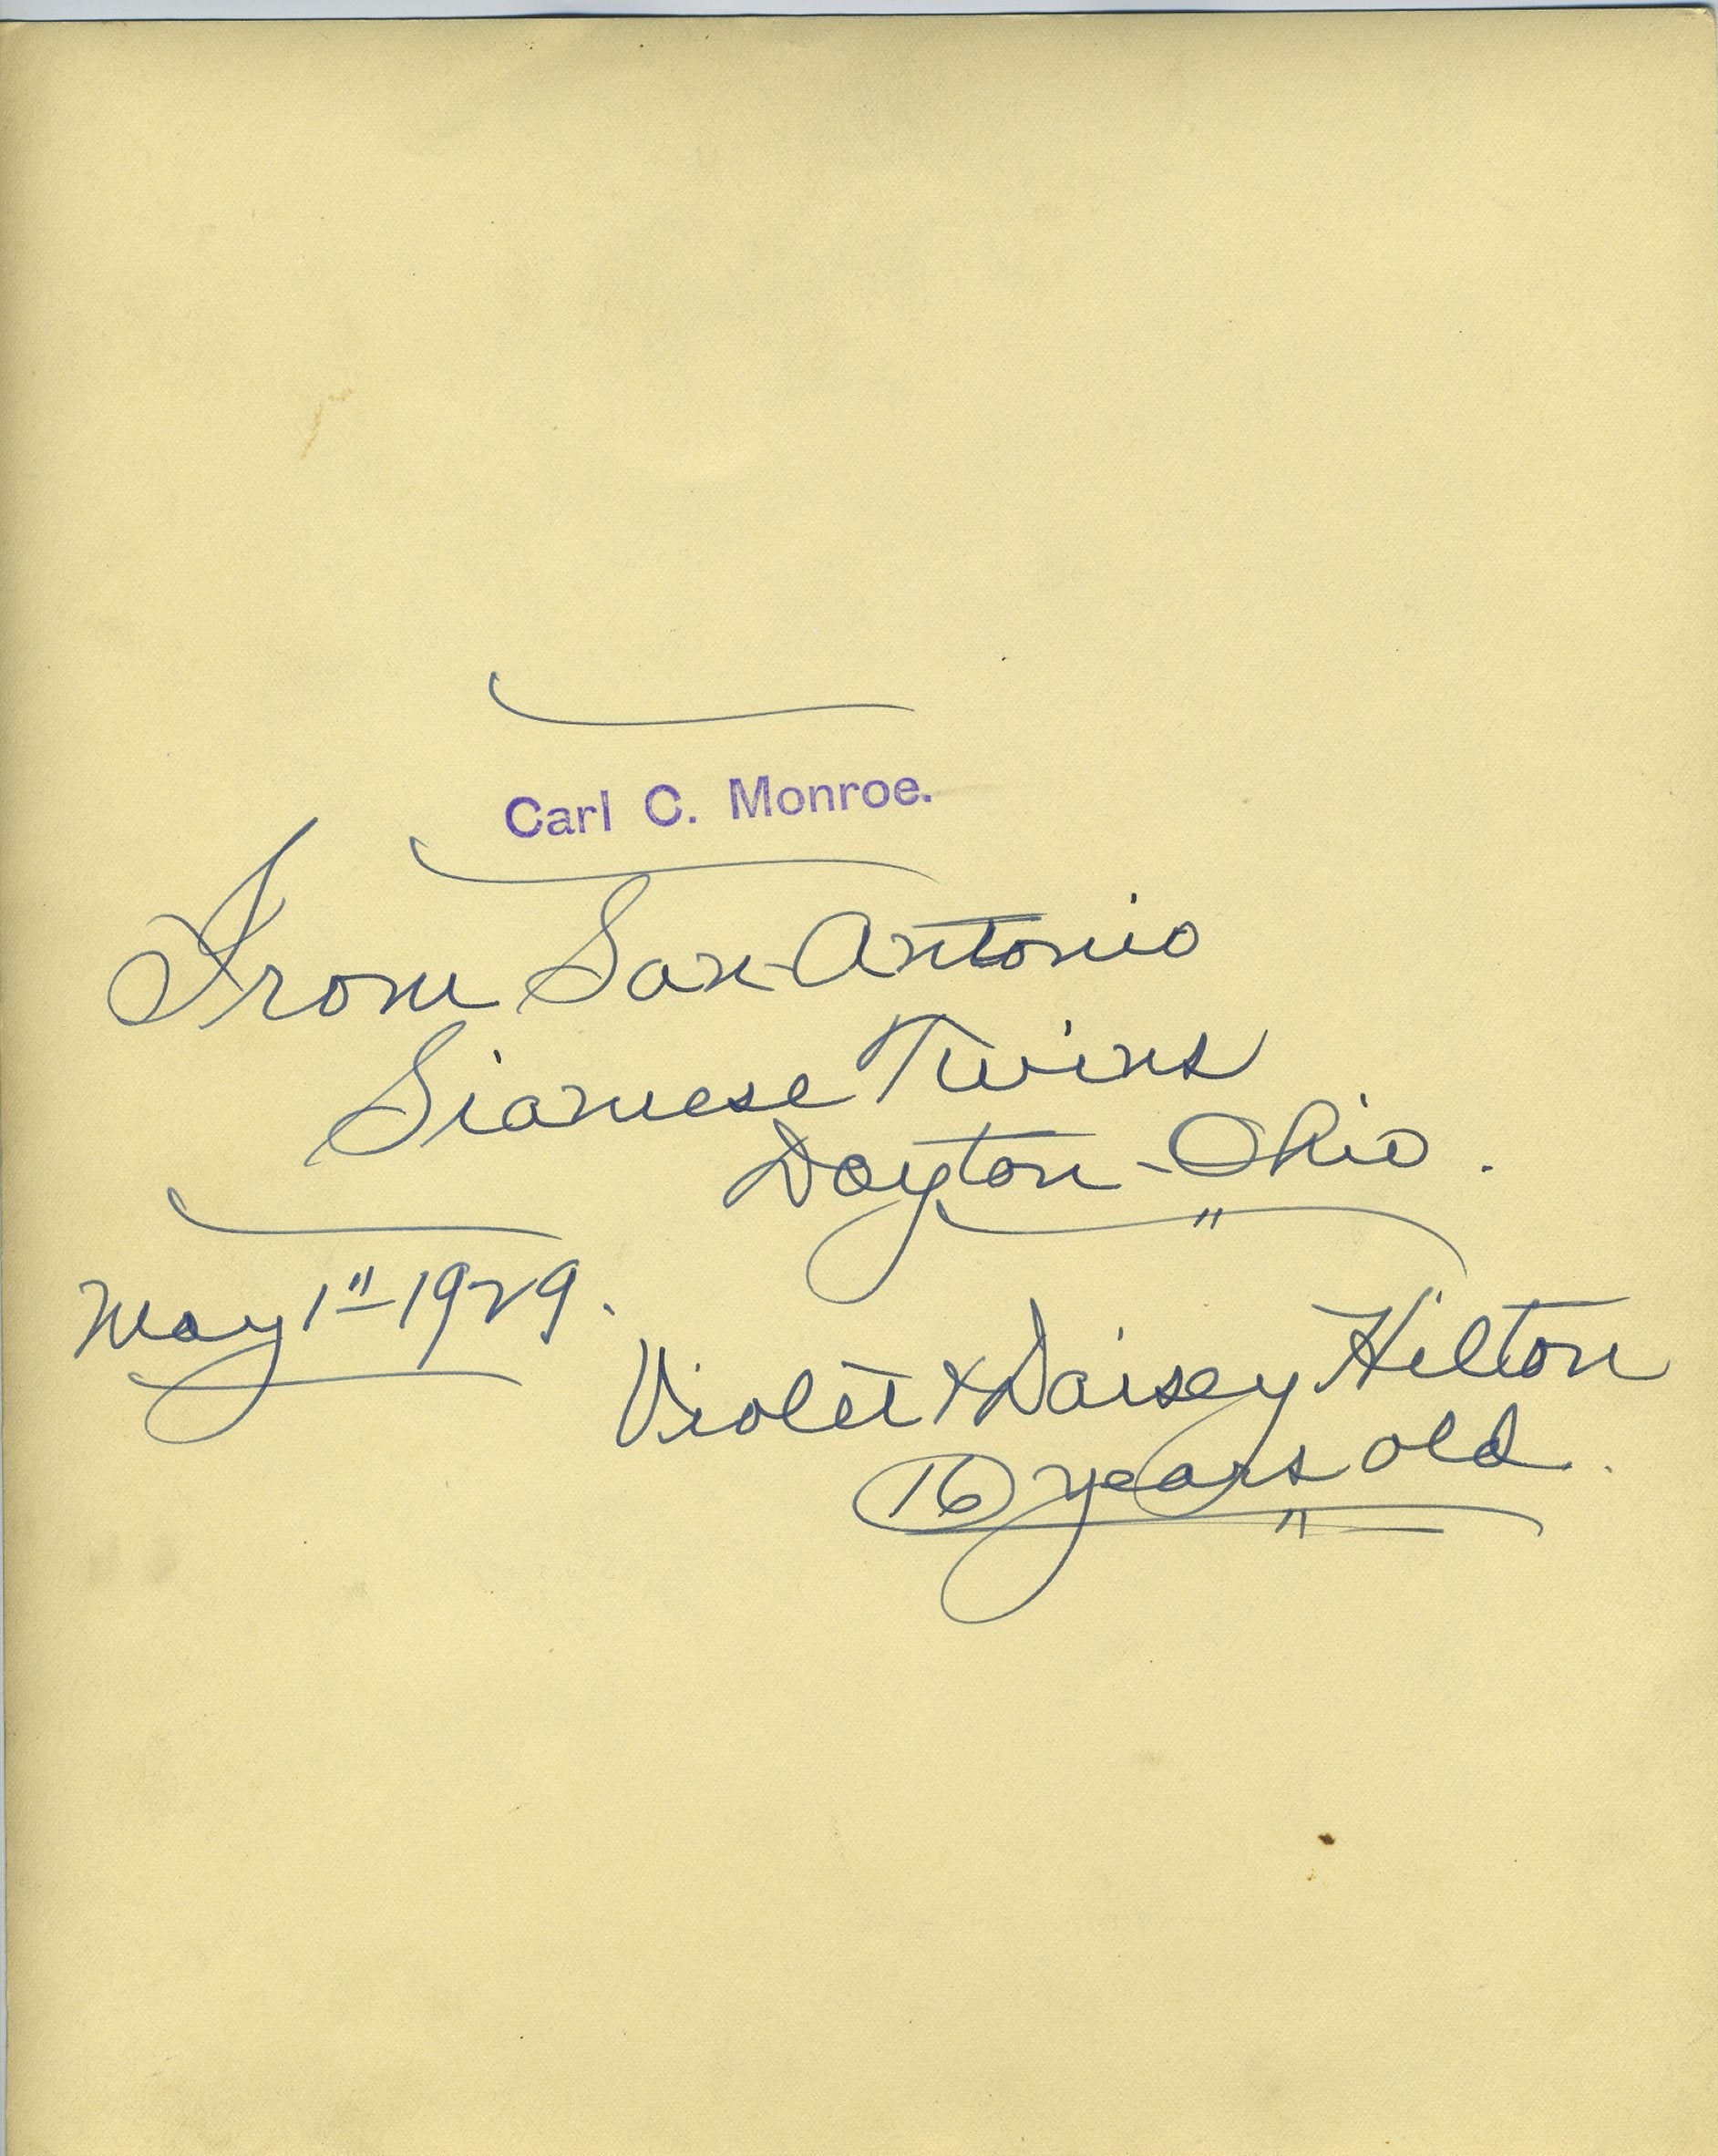 Carl C. Monroe.
From San-Antonio
Siamese Twins
Dayton-Ohio.
May 1" 1929.
Violet & Daisey Hilton
16 years old.